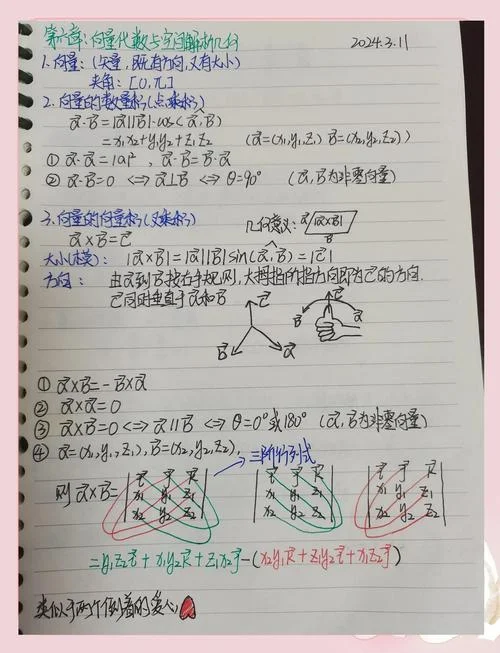 第六章:向量代数与空间解析几何 2024.3.11
1.向量:(矢量,既有方向,又有大小)
夹角:[0,π]
2.向量的数量积(点乘积)
a⃗·b⃗=|a⃗||b⃗|·cos(a⃗,b⃗)
=x₁x₂+y₁y₂+z₁z₂ (a⃗=(x₁,y₁,z₁) b⃗=(x₂,y₂,z₂))
① a⃗·a⃗=|a|², a⃗·b⃗=b⃗·a⃗
② a⃗·b⃗=0 ⇔ a⃗⊥b⃗ ⇔ θ=90° (a⃗,b⃗为非零向量)
3.向量的向量积(叉乘积) 几何意义: a⃗ |a⃗×b⃗| b⃗
a⃗×b⃗=c⃗
大小(模): |a⃗×b⃗|=|a⃗||b⃗|sin(a⃗,b⃗)=|c⃗|
方向: 由a⃗到b⃗按右手规则,大拇指所指方向即为c⃗的方向.
c⃗同时垂直于a⃗和b⃗
c⃗ b⃗ a⃗ c⃗ b⃗ a⃗
① a⃗×b⃗=-b⃗×a⃗
② a⃗×a⃗=0
③ a⃗×b⃗=0 ⇔ a⃗∥b⃗ ⇔ θ=0°或180° (a⃗,b⃗为非零向量)
④ a⃗=(x₁,y₁,z₁), b⃗=(x₂,y₂,z₂),
三阶行列式
则 a⃗×b⃗= | i⃗ j⃗ k⃗ | | i⃗ j⃗ k⃗ | | i⃗ j⃗ k⃗ |
| x₁ y₁ z₁ | | x₁ y₁ z₁ | | x₁ y₁ z₁ |
| x₂ y₂ z₂ | | x₂ y₂ z₂ | | x₂ y₂ z₂ |
=y₁z₂i⃗+x₁y₂k⃗+z₁x₂j⃗-(x₂y₁k⃗+z₁y₂i⃗+x₁z₂j⃗)
类似于两个倒着的爱心